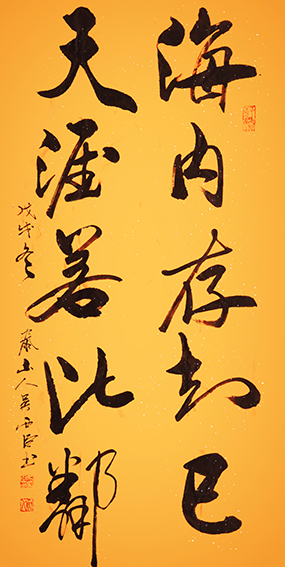 海内存知己
天涯若比邻
戊戌冬
山人吴西臣书